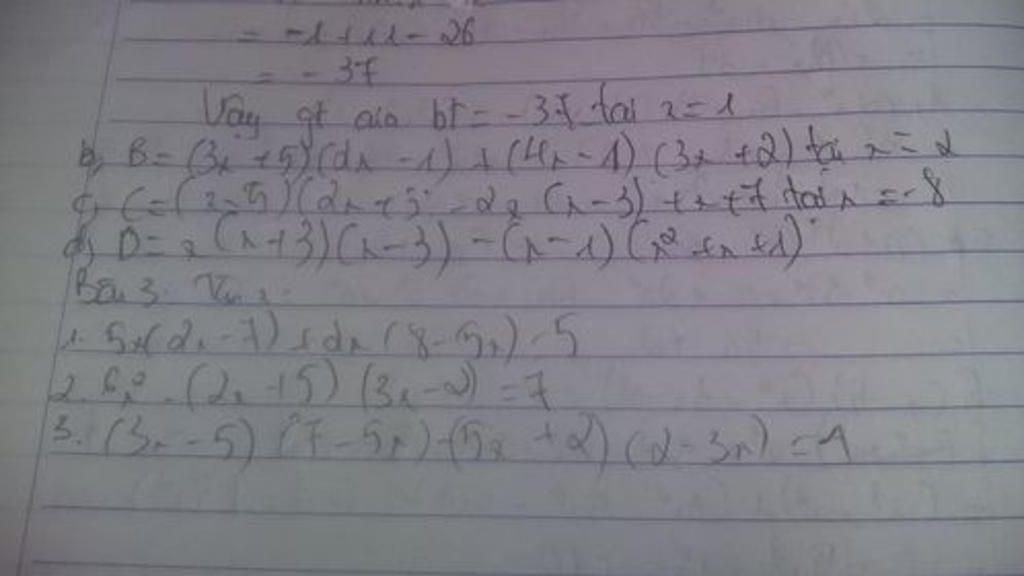 = -1 + 11 - 26
= - 37
Vậy gt của bt = -37 tại x = 1
b, B = (3x + 5)(2x - 1) + (4x - 1)(3x + 2) tại x = 2
c, C = (x - 5)(2x + 3) - 2x(x - 3) + x + 7 tại x = -8
d, D = x(x + 3)(x - 3) - (x - 1)(x² + x + 1)
Bài 3. Tìm x.
1. 5x(2x - 7) + 2x(8 - 5x) = 5
2. 6x² - (2x + 5)(3x - 2) = 7
3. (3x - 5)(7 - 5x) - (5x + 2)(2 - 3x) = 4